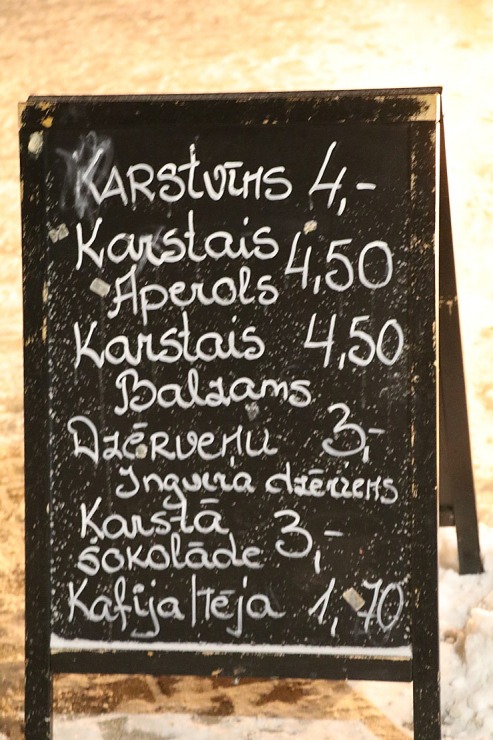 KARSTVĪNS 4,-
Karstais
Aperols 4,50
Karstais 4,50
Balzams
Dzērveņu 3,-
Ingvera dzēriens
Karstā
šokolāde 3,-
Kafija/tēja 1,70